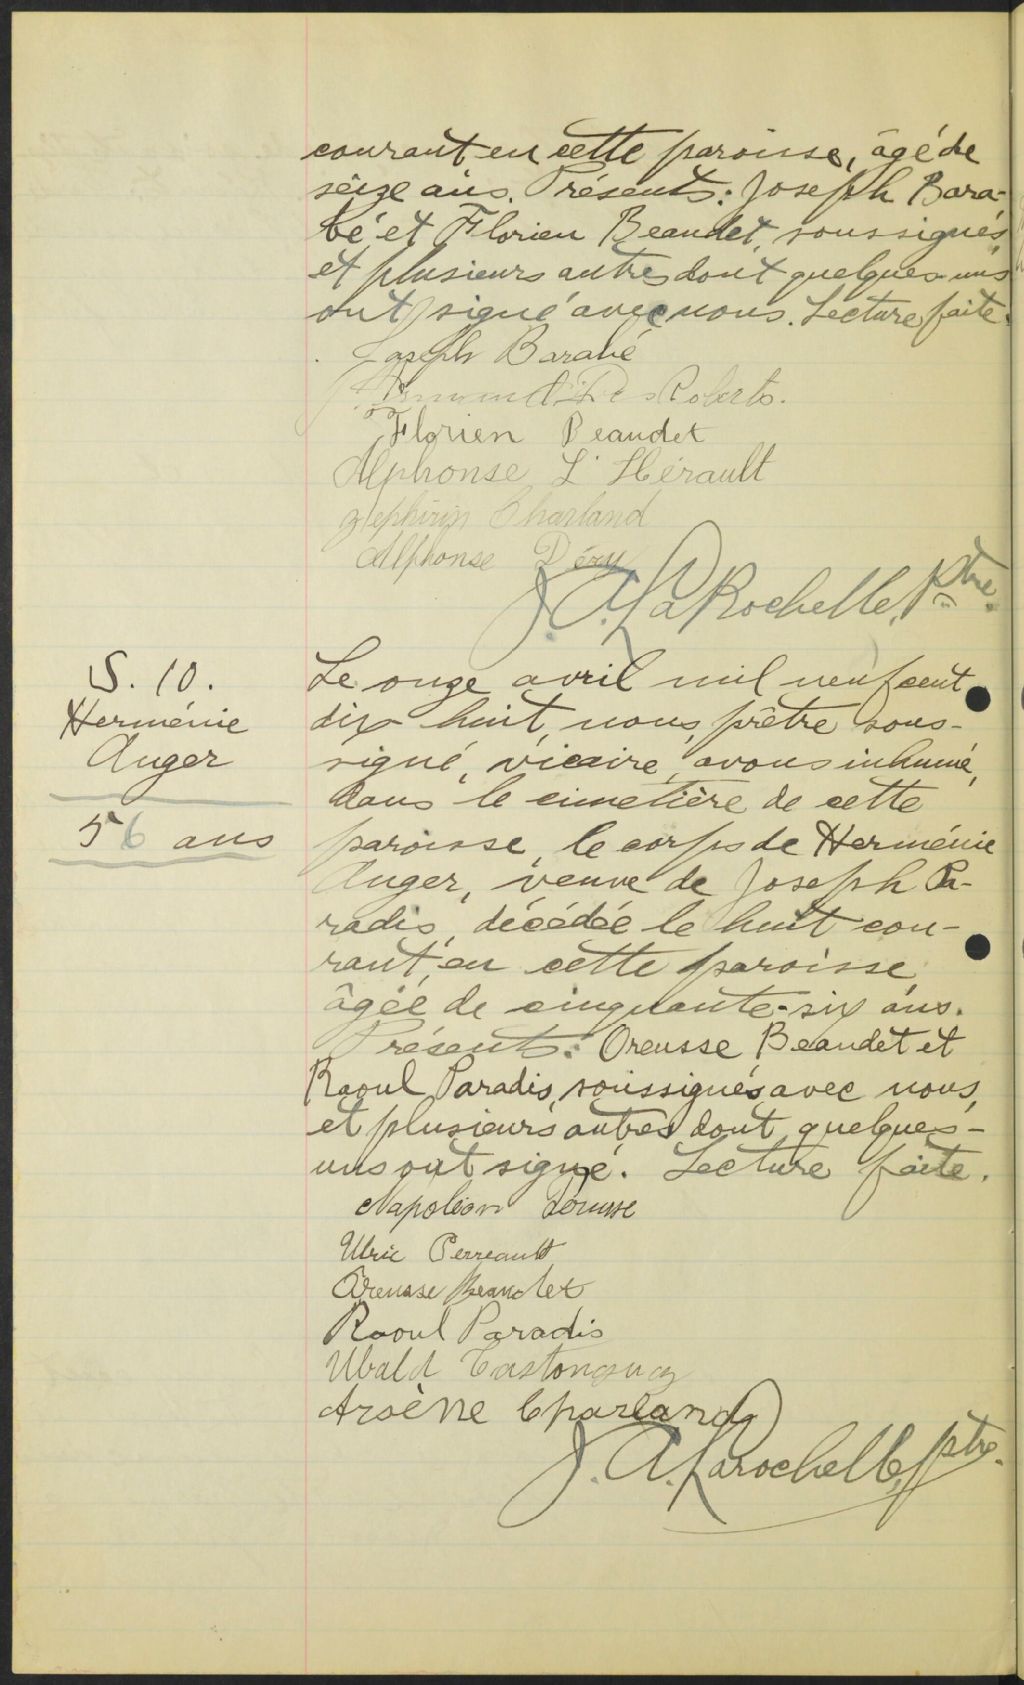 courant, en cette paroisse, âgé de
seize ans. Présents: Joseph Bara-
bé et Florien Beaudet, soussignés,
et plusieurs autres dont quelques-uns
ont signé avec nous. Lecture faite.
Joseph Barabé
Roberts.
Florien Beaudet
Alphonse L'Hérault
Zéphirin Charland
Alphonse Déry
J. A. LaRochelle, Ptre.
S. 10.
Herménie
Anger
56 ans
Le onze avril mil neuf cent
dix huit, nous, prêtre sous-
signé, vicaire, avons inhumé,
dans le cimetière de cette
paroisse, le corps de Herménie
Anger, veuve de Joseph Pa-
radis, décédée le huit cou-
rant, en cette paroisse,
âgée de cinquante-six ans.
Présents: Oreusse Beaudet et
Raoul Paradis, soussignés avec nous,
et plusieurs autres dont quelques-
uns ont signé. Lecture faite.
Napoléon
Ulric Perreault
Oreusse Beaudet
Raoul Paradis
Ubald Castonguay
Arsène Charland
J. A. Larochelle, ptre.